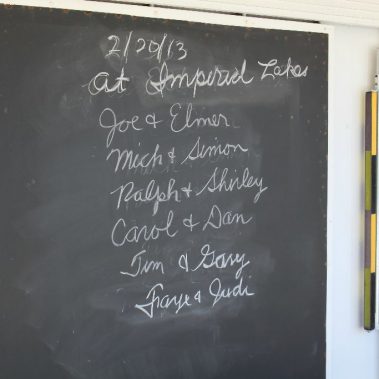 2/20/13
At Imperial Lakes
Joe & Elmer
Mich & Simon
Ralph & Shirley
Carol & Dan
Jim & Gary
Fraye & Judi